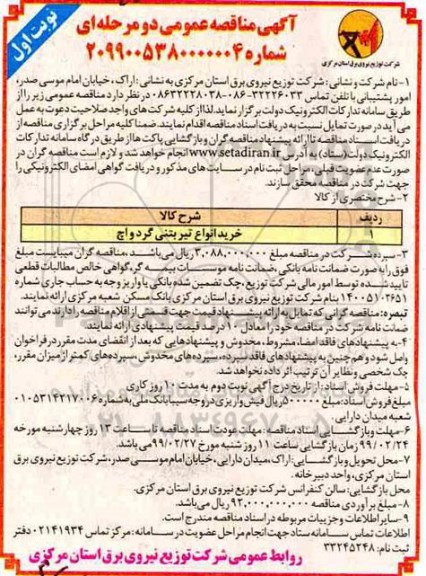 نوبت اول
آگهی مناقصه عمومی دو مرحله ای
شماره ۲۰۹۹۰۰۵۳۸۰۰۰۰۰۰۴
شرکت توزیع نیروی برق استان مرکزی
۱- نام شرکت و نشانی: شرکت توزیع نیروی برق استان مرکزی به نشانی: اراک، خیابان امام موسی صدر،
امور پشتیبانی با تلفن تماس ۳۲۲۲۶۰۳۳-۰۸۶ و ۰۸۶۳۲۲۲۸۰۳۸ در نظر دارد مناقصه عمومی زیر را از
طریق سامانه تدارکات الکترونیک دولت برگزار نماید. لذا از کلیه شرکت های واجد صلاحیت دعوت به عمل
می آید در صورت تمایل نسبت به دریافت اسناد مناقصه اقدام نمایند. ضمنا کلیه مراحل برگزاری مناقصه از
دریافت اسناد مناقصه تا ارائه پیشنهاد مناقصه گران و بازگشایی پاکت ها از طریق درگاه سامانه تدارکات
الکترونیک دولت (ستاد) به آدرس www.setadiran.ir انجام خواهد شد و لازم است مناقصه گران در
صورت عدم عضویت قبلی، مراحل ثبت نام در سایت های مذکور و دریافت گواهی امضای الکترونیکی را
جهت شرکت در مناقصه محقق سازند.
۲- شرح مختصری از کالا
ردیف شرح کالا
۱ خرید انواع تیر بتنی گرد و اچ
۳- سپرده شرکت در مناقصه مبلغ ۳،۰۸۸،۰۰۰،۰۰۰ ریال می باشد. مناقصه گران میبایست مبلغ
فوق را به صورت ضمانت نامه بانکی، ضمانت نامه موسسات بیمه گر، گواهی خالص مطالبات قطعی
تایید شده توسط امور مالی شرکت توزیع، چک تضمین شده بانکی یا واریز وجه به حساب جاری شماره
۱۴۰۰۵۱۰۲۶۵۱ بنام شرکت توزیع نیروی برق استان مرکزی بانک مسکن شعبه مرکزی ارائه نمایند.
تبصره: مناقصه گرانی که تمایل به ارائه پیشنهاد قیمت جهت قسمتی از اقلام مناقصه را دارند می توانند
ضمانت نامه شرکت در مناقصه خود را معادل ۱۰ درصد قیمت پیشنهادی ارائه نمایند.
۴- به پیشنهادهای فاقد امضا، مشروط، مخدوش و پیشنهادهایی که بعد از انقضای مدت مقرر در فراخوان
واصل شود و هم چنین به پیشنهادهای فاقد سپرده، سپرده های مخدوش، سپرده های کمتر از میزان مقرر،
چک شخصی و نظایر آن ترتیب اثر داده نخواهد شد.
۵- مهلت فروش اسناد: از تاریخ درج آگهی نوبت دوم به مدت ۱۰ روز کاری
مبلغ فروش اسناد: مبلغ ۵۰۰۰۰۰ ریال فیش واریزی در وجه سیبا بانک ملی به شماره ۰۱۰۵۳۱۴۲۱۷۰۰۶
شعبه میدان دارایی
۶- مهلت و بازگشایی اسناد مناقصه: مهلت عودت اسناد مناقصه تا ساعت ۱۳ روز چهارشنبه مورخه
۹۹/۰۲/۲۴ زمان بازگشایی ساعت ۱۱ روز شنبه مورخ ۹۹/۰۲/۲۷ می باشد.
۷- محل تحویل و بازگشایی: اراک، میدان دارایی، خیابان امام موسی صدر، شرکت توزیع نیروی برق
استان مرکزی، واحد دبیرخانه.
محل بازگشایی: سالن کنفرانس شرکت توزیع نیروی برق استان مرکزی.
۸- مبلغ برآوردی مناقصه ۹۲،۰۰۰،۰۰۰،۰۰۰ ریال می باشد.
۹- سایر اطلاعات و جزییات مربوطه در اسناد مناقصه مندرج است.
اطلاعات تماس سامانه ستاد جهت انجام مراحل عضویت در سامانه: مرکز تماس ۰۲۱۴۱۹۳۴ دفتر
ثبت نام: ۳۳۲۴۵۲۴۸
روابط عمومی شرکت توزیع نیروی برق استان مرکزی